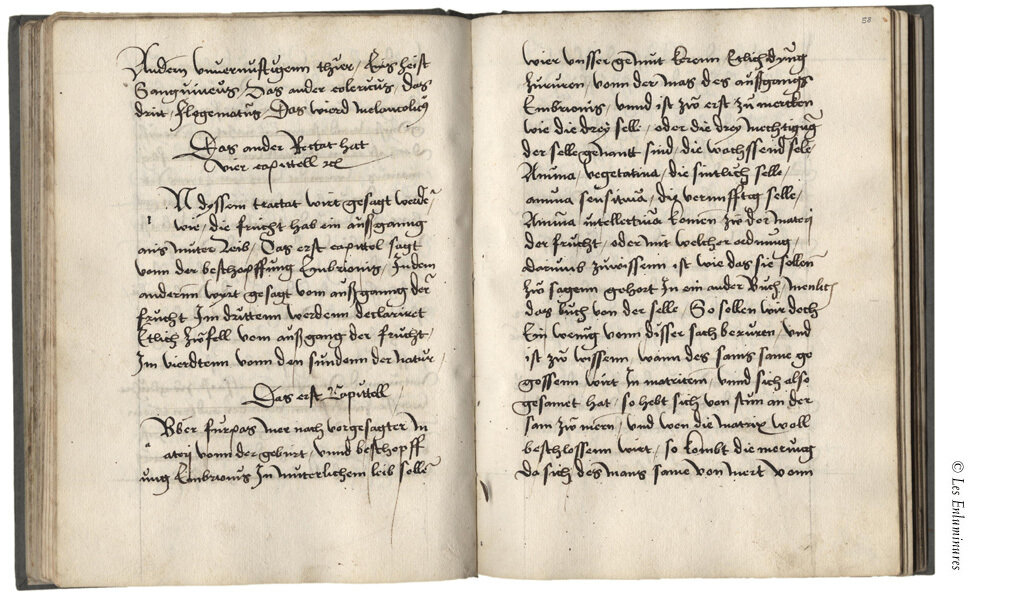 Andern unvernufftigenn thier / Eins heist
Sanguineus / Das ander colericus / das
drit / flegmatus / Das vierd melancolicus
Das ander Tractat hat
vier capittell
dyssem tractat wirt gesagt werde
wie / die frucht hab ein aussganng
aus muter Leib / Das erst capittol sagt
vonn der beschopffung Embrionis / In dem
andernn wyrt gesagt vom aussganng der
frucht Im dryttenn werdenn declariret
Etlich Zufell vom aussgang der frucht /
Im vierdtenn vonn den sundenn der natur
Das erst Capittell
Aber furpas mer nach vorgesagter m
aterj vonn der geburt / vnnd beschopff
ung Embrionis In muterlichem leib sollen
58
wier vnsser gemut keren Etlich dyng
zururen / vonn der mas des aussgangs
Embrionis / vnnd ist zw erst zu mercken
wie die drey selle / oder die drey mechtigung
der selle genantt sind / die wachssend sele
Anima / vegetatiua / die sintlich selle /
anima sensitiua / die vernufftig selle /
Anima intellectiua komen zw der materj
der frucht / oder mit welcher ordnung /
darumb zuwissenn ist wie das sie sollen
zw sagenn gehort In ein ander Buch /
das buch von der selle / So sollen wir doch
Ein wenig vonn disser sach beruren / vnd
ist zw wissenn / wann des mans same ge
gossenn wirt In matricem / vnnd sich also
gesamet hat / so hebt sich von stun an der
sam zw mern / vnd wen die matrix woll
beschlossenn wirt / so kombt die merung
da sich des mans same von mert vonn
© Les Enluminures